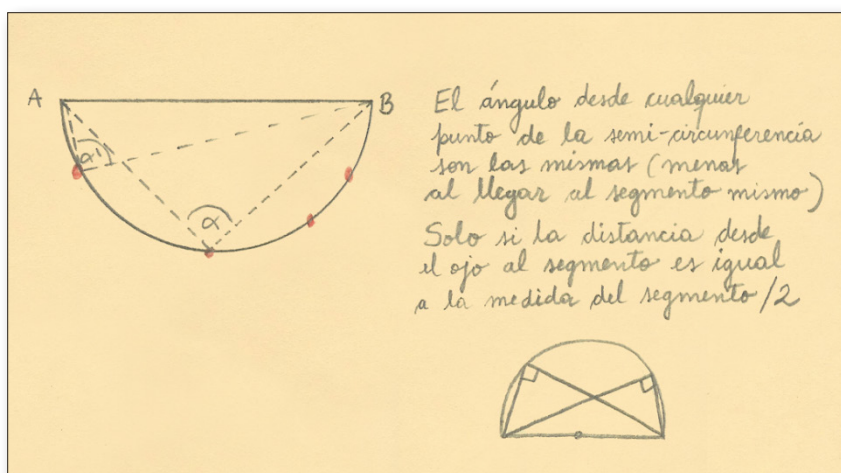 A
B
α'
α
El ángulo desde cualquier
punto de la semi-circunferencia
son las mismas (menos
al llegar al segmento mismo)
Solo si la distancia desde
el ojo al segmento es igual
a la medida del segmento/2